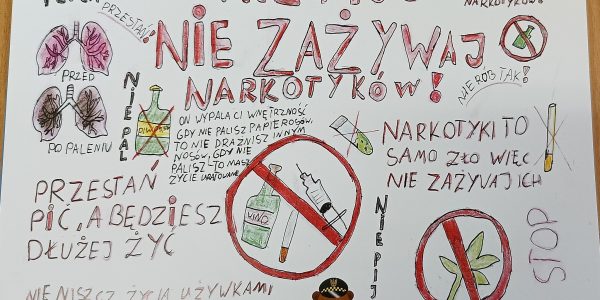 PRZESTAŃ!
NARKOTYKÓW!
NIE ZAŻYWAJ
NARKOTYKÓW!
NIE RÓB TAK!
PRZED
PO PALENIU
NIE PAL
ON WYPALA CI WNĘTRZNOŚĆ
GDY NIE PALISZ PAPIEROSÓW,
TO NIE DRAŻNISZ INNYM
NOSÓW, GDY NIE
PALISZ-TO MASZ
ŻYCIE URATOWANE
NARKOTYKI TO
SAMO ZŁO WIĘC
NIE ZAŻYWAJ ICH
PRZESTAŃ
PIĆ, A BĘDZIESZ
DŁUŻEJ ŻYĆ
WINO
NIE PIJ
STOP
NIE NISZCZ ŻYCIA UŻYWKAMI